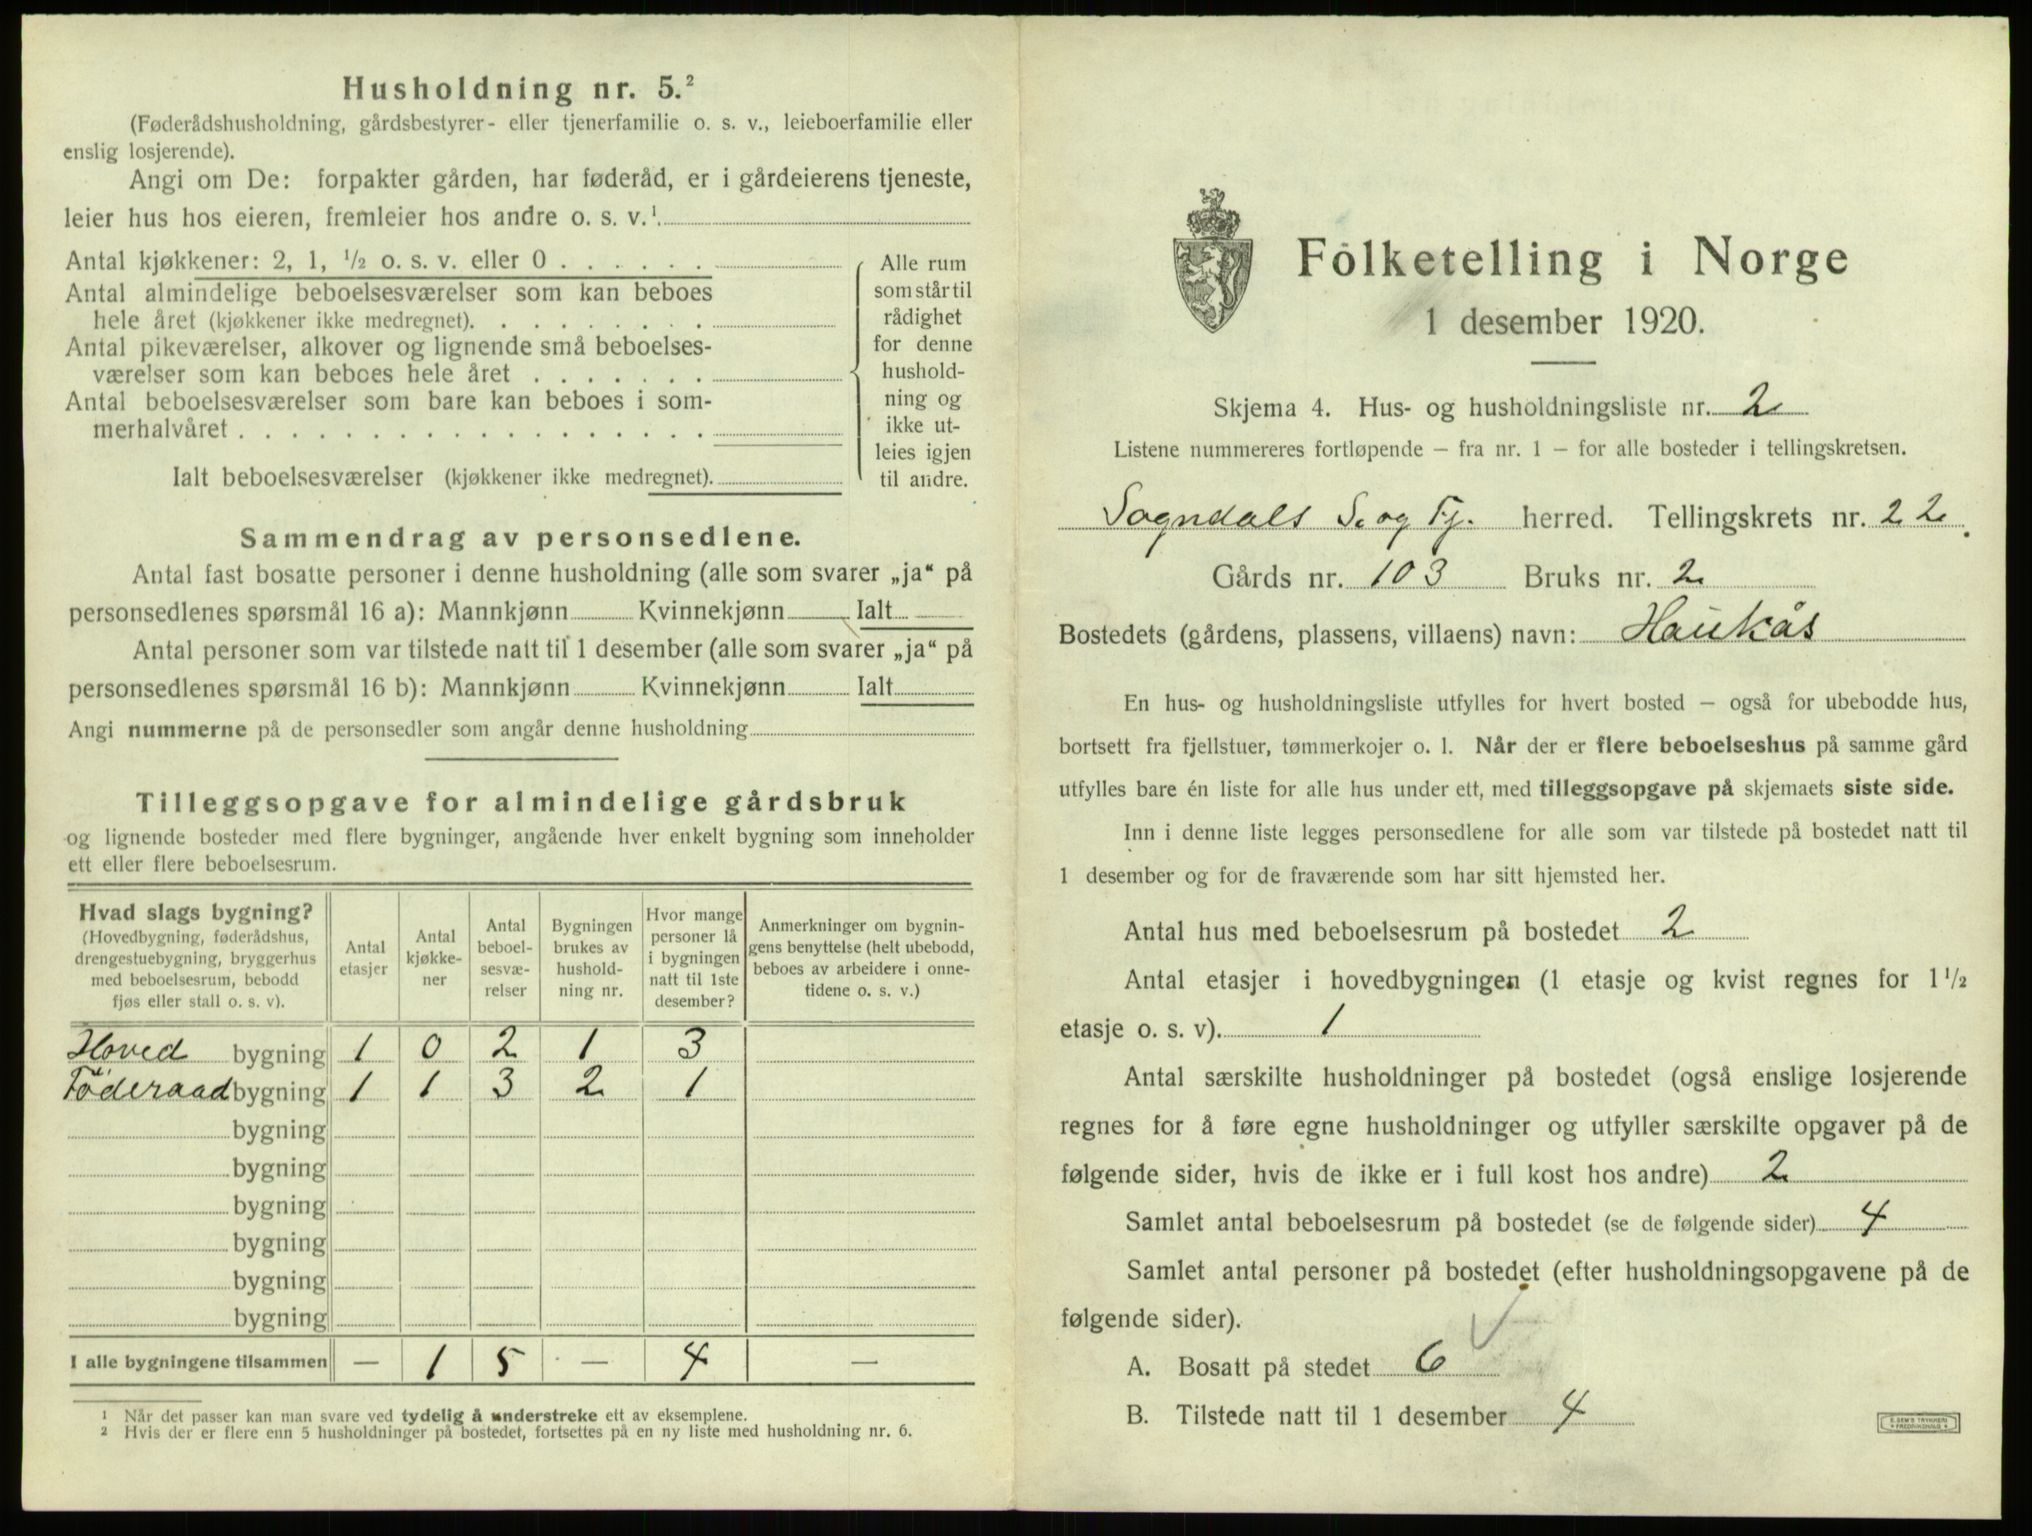 Husholdning nr. 5.²
(Føderådshusholdning, gårdsbestyrer- eller tjenerfamilie o. s. v., leieboerfamilie eller
enslig losjerende).
Angi om De: forpakter gården, har føderåd, er i gårdeierens tjeneste,
leier hus hos eieren, fremleier hos andre o. s. v.¹
Antal kjøkkener: 2, 1, ½ o. s. v. eller 0 . . . . . .
Antal almindelige beboelsesværelser som kan beboes
hele året (kjøkkener ikke medregnet). . . . . . . . .
Antal pikeværelser, alkover og lignende små beboelses-
værelser som kan beboes hele året . . . . . . .
Antal beboelsesværelser som bare kan beboes i som-
merhalvåret . . . . . . . . . . . . . . . . . .
Ialt beboelsesværelser (kjøkkener ikke medregnet).
Alle rum
som står til
rådighet
for denne
hushold-
ning og
ikke ut-
leies igjen
til andre.
Sammendrag av personsedlene.
Antal fast bosatte personer i denne husholdning (alle som svarer „ja“ på
personsedlenes spørsmål 16 a): Mannkjønn Kvinnekjønn Ialt
Antal personer som var tilstede natt til 1 desember (alle som svarer „ja“ på
personsedlenes spørsmål 16 b): Mannkjønn Kvinnekjønn Ialt
Angi nummerne på de personsedler som angår denne husholdning
Tilleggsopgave for almindelige gårdsbruk
og lignende bosteder med flere bygninger, angående hver enkelt bygning som inneholder
ett eller flere beboelsesrum.
Hvad slags bygning?
(Hovedbygning, føderådshus,
drengestuebygning, bryggerhus
med beboelsesrum, bebodd
fjøs eller stall o. s. v).
Antal
etasjer
Antal
kjøkke-
ner
Antal
beboel-
sesvæ-
relser
Bygningen
brukes av
hushold-
ning nr.
Hvor mange
personer lå
i bygningen
natt til 1ste
desember?
Anmerkninger om bygnin-
gens benyttelse (helt ubebodd,
beboes av arbeidere i onne-
tidene o. s. v.)
Hoved bygning 1 0 2 1 3
Føderaad bygning 1 1 3 2 1
bygning
bygning
bygning
bygning
bygning
bygning
I alle bygningene tilsammen — 1 5 — 4 —
¹ Når det passer kan man svare ved tydelig å understreke ett av eksemplene.
² Hvis der er flere enn 5 husholdninger på bostedet, fortsettes på en ny liste med husholdning nr. 6.
Folketelling i Norge
1 desember 1920.
Skjema 4. Hus- og husholdningsliste nr. 2
Listene nummereres fortløpende – fra nr. 1 – for alle bosteder i tellingskretsen.
Sogndals S. og Fj. herred. Tellingskrets nr. 22.
Gårds nr. 103 Bruks nr. 2
Bostedets (gårdens, plassens, villaens) navn: Haukås
En hus- og husholdningsliste utfylles for hvert bosted – også for ubebodde hus,
bortsett fra fjellstuer, tømmerkojer o. l. Når der er flere beboelseshus på samme gård
utfylles bare én liste for alle hus under ett, med tilleggsopgave på skjemaets siste side.
Inn i denne liste legges personsedlene for alle som var tilstede på bostedet natt til
1 desember og for de fraværende som har sitt hjemsted her.
Antal hus med beboelsesrum på bostedet 2
Antal etasjer i hovedbygningen (1 etasje og kvist regnes for 1½
etasje o. s. v). 1
Antal særskilte husholdninger på bostedet (også enslige losjerende
regnes for å føre egne husholdninger og utfyller særskilte opgaver på de
følgende sider, hvis de ikke er i full kost hos andre) 2
Samlet antal beboelsesrum på bostedet (se de følgende sider) 4
Samlet antal personer på bostedet (efter husholdningsopgavene på de
følgende sider).
A. Bosatt på stedet 6
B. Tilstede natt til 1 desember 4
E. SEM'S TRYKKERI
FREDRIKSHALD